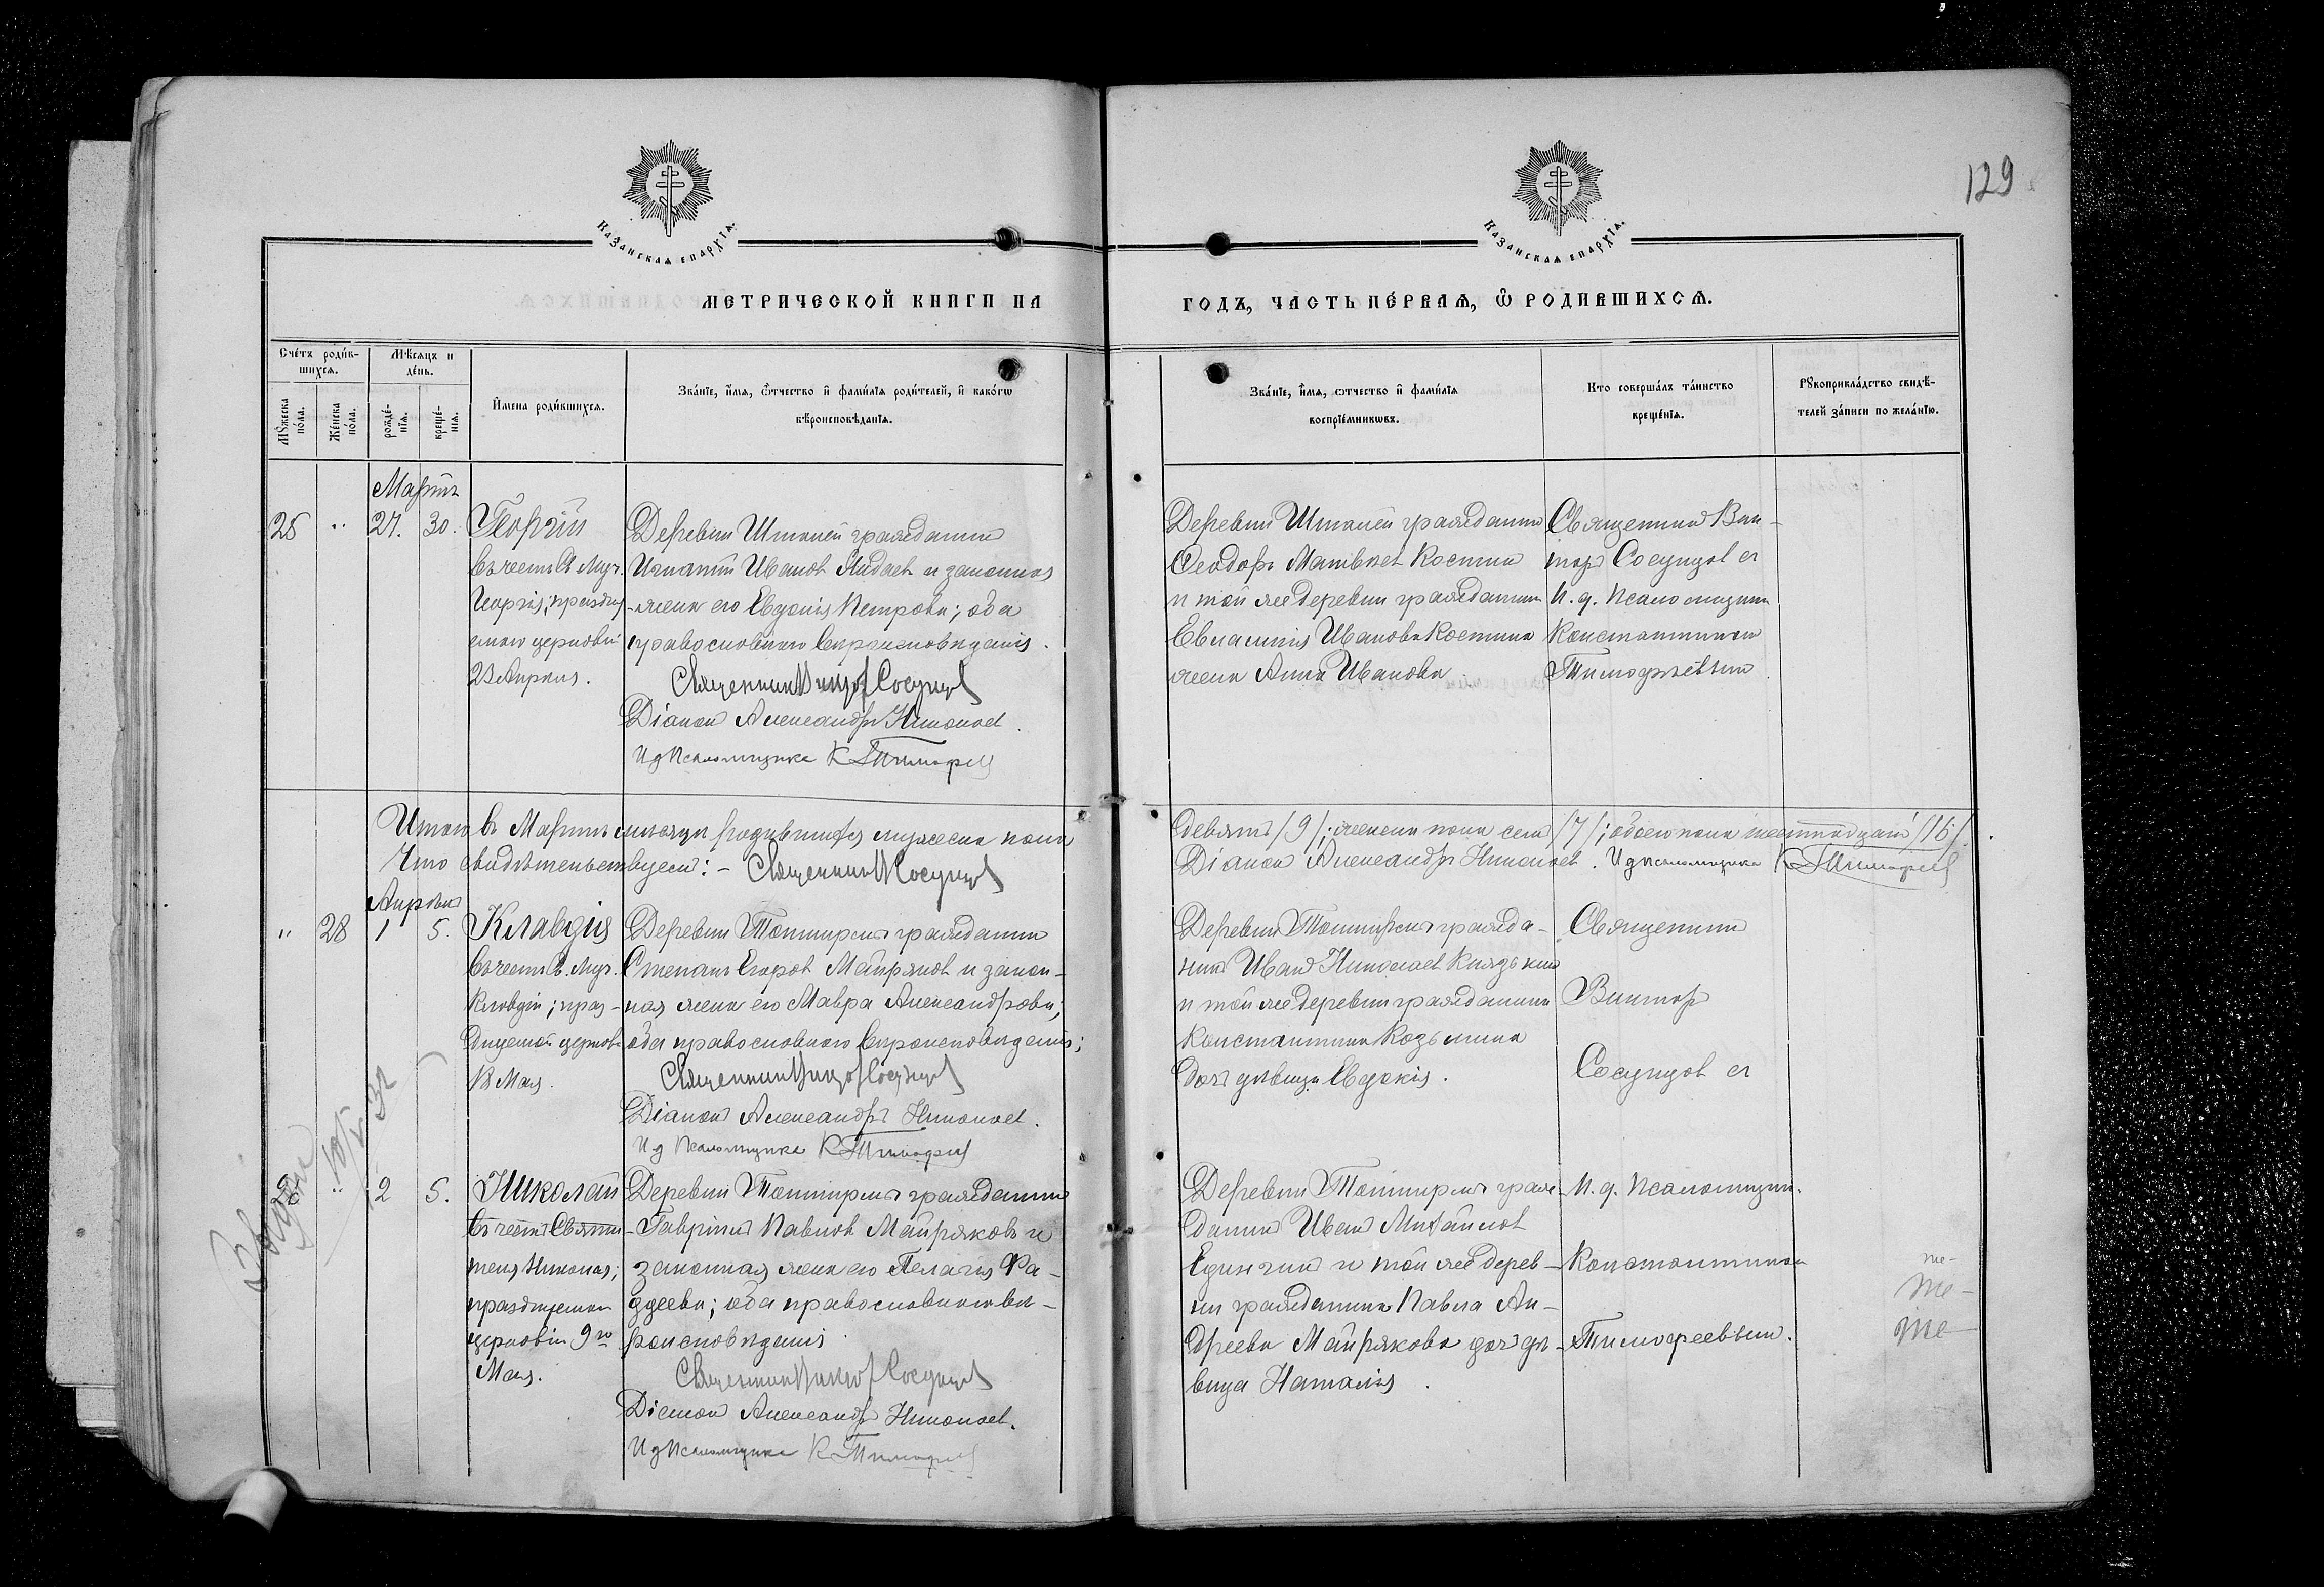 129
Казанская епархїѧ.
Казанская епархїѧ.
МЕТРИЧЕСКОЙ КНИГИ НА
ГОДЪ, ЧАСТЬ ПЕ́РВАЯ, Ѽ РОДИВШИХСЯ.
Сче́тъ роди́в-
шихся.
Мѣсяцъ и
де́нь.
Мꙋ́жеска по́ла.
Же́нска по́ла.
рожде́-
нїя.
креще́-
нїя.
И҆мена роди́вшихся.
Зва́нїе, и҆́мя, ѻ҆́тчество и҆ фами́лїя роди́телей, и҆ како́гѡ
вѣроисповѣ́данїя.
Зва́нїе, и҆́мя, ѻтчество и҆ фами́лїя
воспрїе́мникѡвъ.
Кто соверша́лъ та́инство
креще́нїя.
Рꙋкоприкла́дство свидѣ́-
телей за́писи по жела́нїю.
Мартъ
25 " 27. 30. Георгій
въ честь Св. Муч.
Георгія; праздну-
емаго церковію
23 Апрѣля.
Деревни Штаней гражданинъ
Игнатій Ивановъ и законная
жена его Евдокія Петрова; оба
православнаго вѣроисповѣданія.
Священникъ Викторъ Сосунцовъ
Діаконъ Александръ Николаевъ.
И д Псаломщика К Тимофеев
Деревни Штаней гражданинъ
Ѳеодоръ Матвѣевъ Костинъ
и той же деревни гражданина
Евлампія Иванова Костина
жена Анна Иванова
Священникъ Вик-
торъ Сосунцовъ съ
И. д. Псаломщика
Константиномъ
Тимофѣевымъ
Итого въ Мартѣ мѣсяцѣ родившихся мужеска пола
девять /9/; женска пола семь /7/; обоего пола шестнадцать /16/.
Что свидѣтельствуемъ: – Священникъ В Сосунцовъ
Діаконъ Александръ Николаевъ. И д псаломщика К Тимофеев
Апрѣль
" 28 1 5. Клавдія
въ честь Св. Муч.
Клавдіи; праз-
днуемой церков.
18 Мая.
Деревни Токшикъ гражданинъ
Степанъ Егоровъ Майряковъ и закон-
ная жена его Мавра Александрова;
оба православнаго вѣроисповѣданія;
Священникъ Викторъ Сосунцовъ
Діаконъ Александръ Николаевъ.
И д Псаломщика К Тимофеев
гражда-
нинъ Иванъ Николаевъ Князькинъ
и той же деревни гражданина
Константина Козьмина
дочь дѣвица Евдокія.
Священникъ
Викторъ
Сосунцовъ съ
" 2 5. Николай
въ честь Святи-
теля Николая;
празднуемаго
церковію 9го
Мая.
гражданинъ
Гавріилъ Павловъ Майряковъ и
законная жена его Пелагія Ѳа-
ддеева; оба православнаго вѣ-
роисповѣданія.
Священникъ Викторъ Сосунцовъ
Діаконъ Александръ Николаевъ.
И д Псаломщика К Тимофеев
граж-
данинъ Иванъ Михайловъ
и той же дерев-
ни гражданина Павла Ан-
дреева Майрякова дочь дѣ-
вица Наталія.
И. д. Псаломщик.
Константиномъ
Тимофеевымъ.
те-
те-
те-